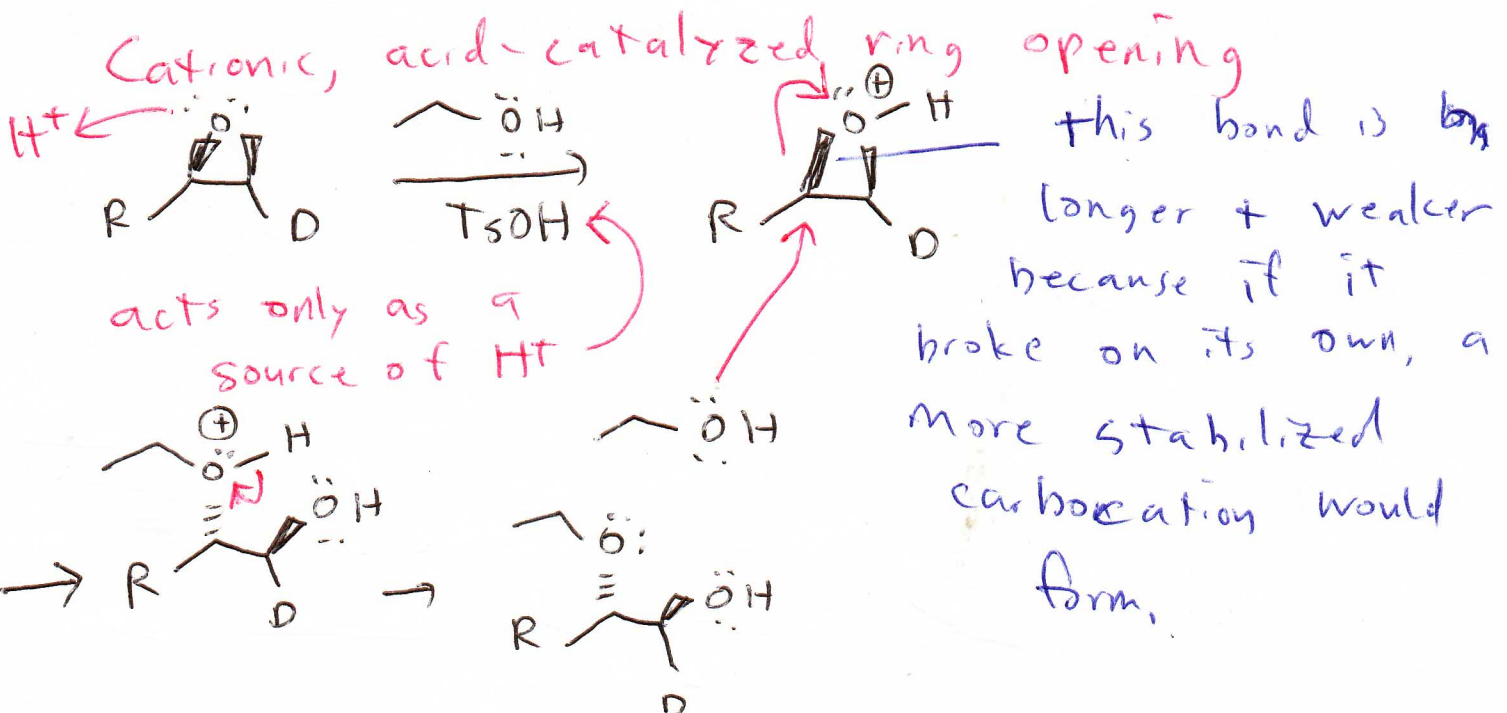 Cationic, acid-catalyzed ring opening
H+
O
OH
R
D
TsOH
acts only as a
source of H+
⊕
O
H
R
D
OH
this bond is
longer + weaker
because if it
broke on its own, a
more stabilized
carbocation would
form.
⊕
O
H
OH
R
D
O
OH
R
D